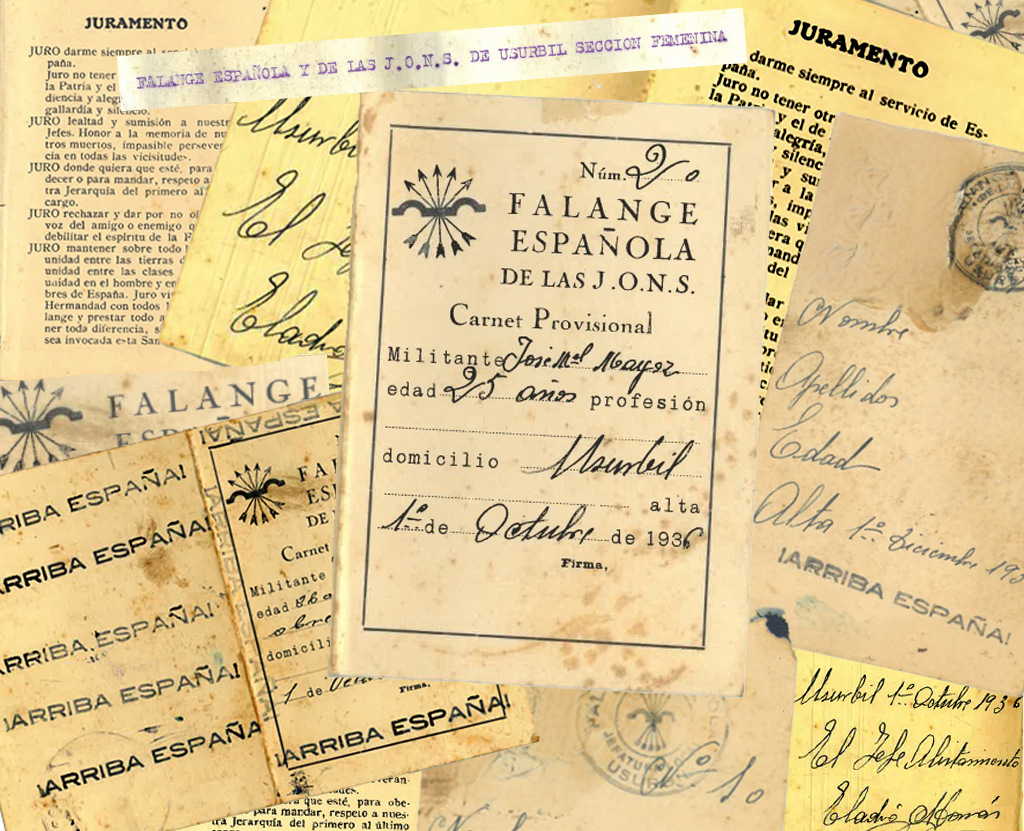 JURAMENTO
JURO darme siempre al
paña.
Juro no tener
la Patria y el
diencia y
gallardía y silencio.
JURO lealtad y sumisión a
Jefes. Honor a la memoria de
tros muertos, impasible
cia en todas las vicisitudes.
JURO donde quiera que esté, para
decer o para mandar, respeto a
tra Jerarquía del primero al
cargo.
JURO rechazar y dar por no
voz del amigo o enemigo
debilitar el espíritu de la
JURO mantener sobre todo
unidad entre las tierras
unidad entre las clases
unidad en el hombre y en
bres de España. Juro
Hermandad con todos
lange y prestar todo
ner toda diferencia,
sea invocada esta
FALANGE ESPAÑOLA Y DE LAS J.O.N.S. DE USURBIL SECCION FEMENINA
Usurbi
El
Eladio
JURAMENTO
darme siempre al servicio de Es-
paña.
Juro no tener
la y el de
alegría,
Núm. 20
FALANGE
ESPAÑOLA
DE LAS J.O.N.S.
Carnet Provisional
Militante José Mª Mayoz
edad 25 años profesión
domicilio Usurbil
alta
1º de Octubre de 1936
Firma,
Nombre
Apellidos
Edad
Alta 1º Diciembre 193
¡ARRIBA ESPAÑA!
FALANGE
ARRIBA ESPAÑA!
ARRIBA ESPAÑA!
ARRIBA ESPAÑA!
¡ARRIBA ESPAÑA!
¡ARRIBA ESPAÑA!
FALA
ESP
DE
Carnet
Militante
edad
domicili
1 de
Firma,
¡ARRIBA ESPAÑA!
JEFATURA
USURBIL
Nº 10
Usurbil 1º Octubre 1936
El Jefe Alistamiento
Eladio
que esté, para obe-
para mandar, respeto a nues-
tra Jerarquía del primero al último